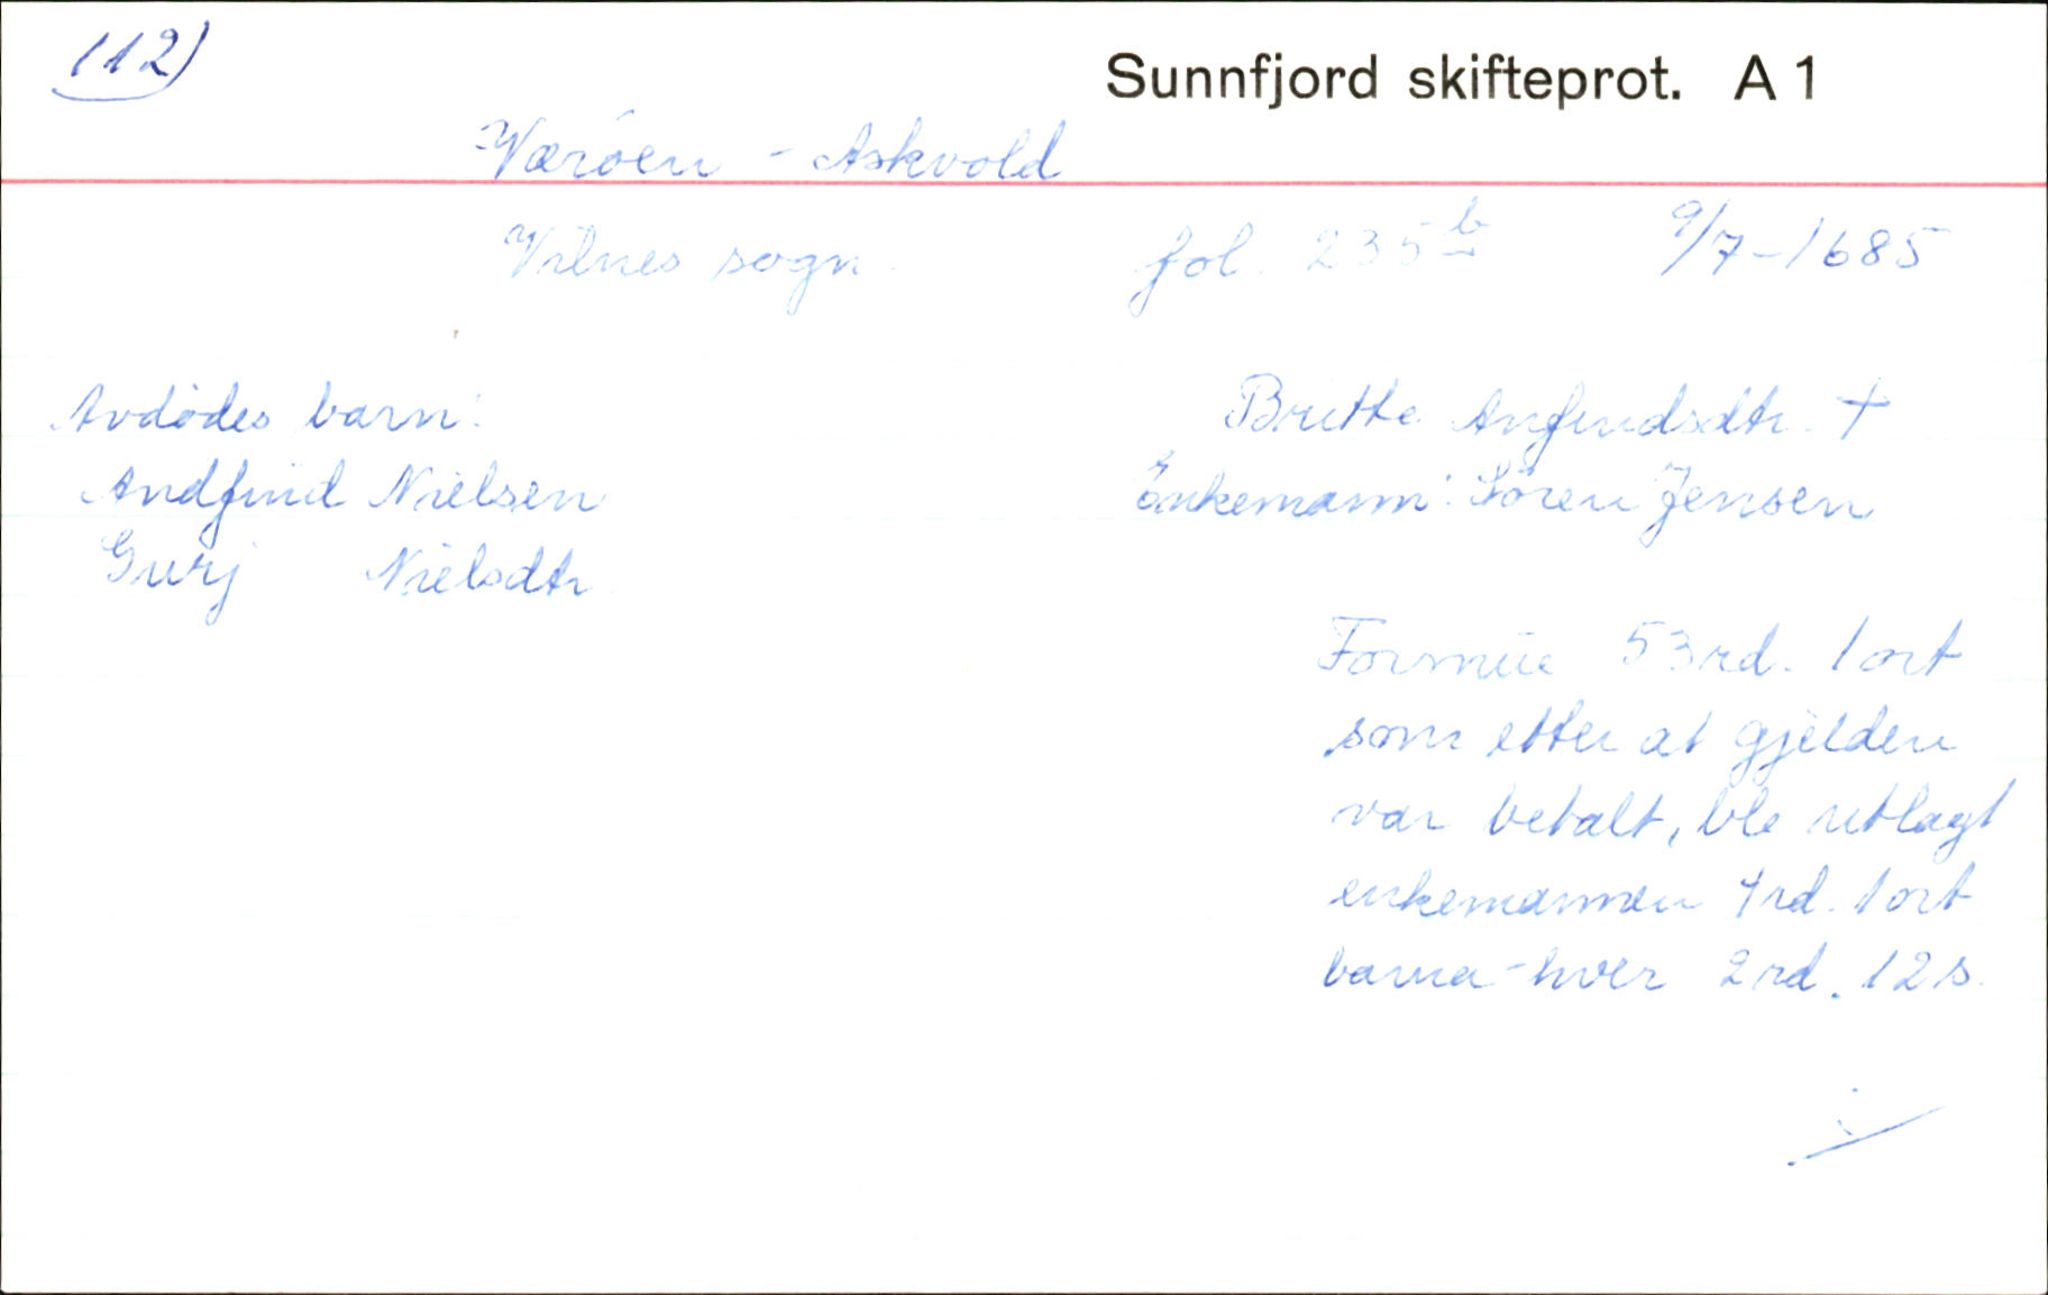 (12)
Sunnfjord skifteprot. A 1
Værøen - Askvold
Vilnes sogn. fol. 235 b 9/7-1685
Avdødes barn:
Andfind Nielsen
Gurj Nielsdtr
Britte Anfindsdtr. +
Enkemann: Søren Jensen
Formue 53 rd. 1 ort
som etter at gjelden
var betalt, ble utlagt
enkemannen 4 rd. 1 ort
barna - hver 2 rd. 12 s.